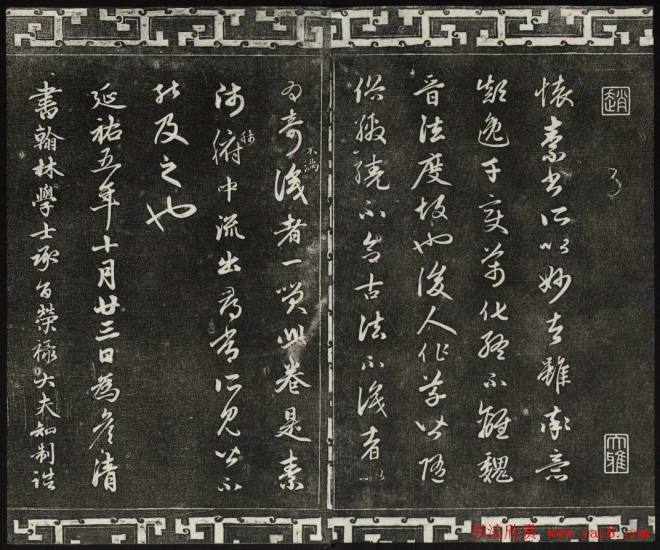 趙
懷素書所以妙者雖率意
顛逸千變萬化終不離魏
晉法度故也後人作草皆隨
俗繳繞不合古法不識者以
為奇不滿識者一笑此卷是素
師肺腑中流出尋常所見皆不
能及之也
延祐五年十月廿三日為彥清
書翰林學士承旨榮祿大夫知制誥
大雅
书法欣赏 www.yac8.com